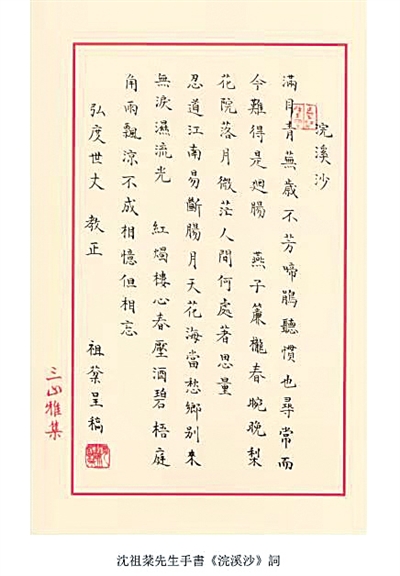 浣溪沙
滿目青蕪歲不芳啼鵑聽慣也尋常而
今難得是迴腸　燕子簾櫳春晼晚梨
花院落月微茫人間何處著思量
忍道江南易斷腸月天花海當愁鄉別來
無淚濕流光　紅燭樓心春壓酒碧梧庭
角雨飄涼不成相憶但相忘
弘度世丈　教正
祖棻呈稿
三山雅集
沈祖棻先生手書《浣溪沙》詞